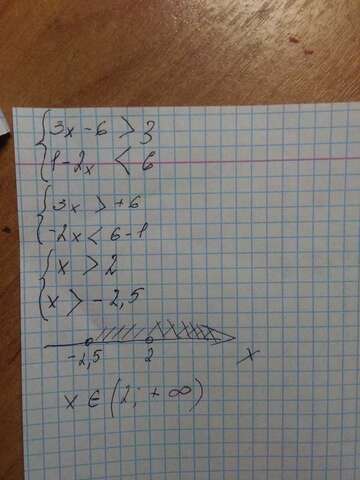 {3x - 6 > 3
{1 - 2x < 6
{3x > +6
{-2x < 6 - 1
{x > 2
{x > -2,5
-2,5 2 x
x ∈ (2; +∞)